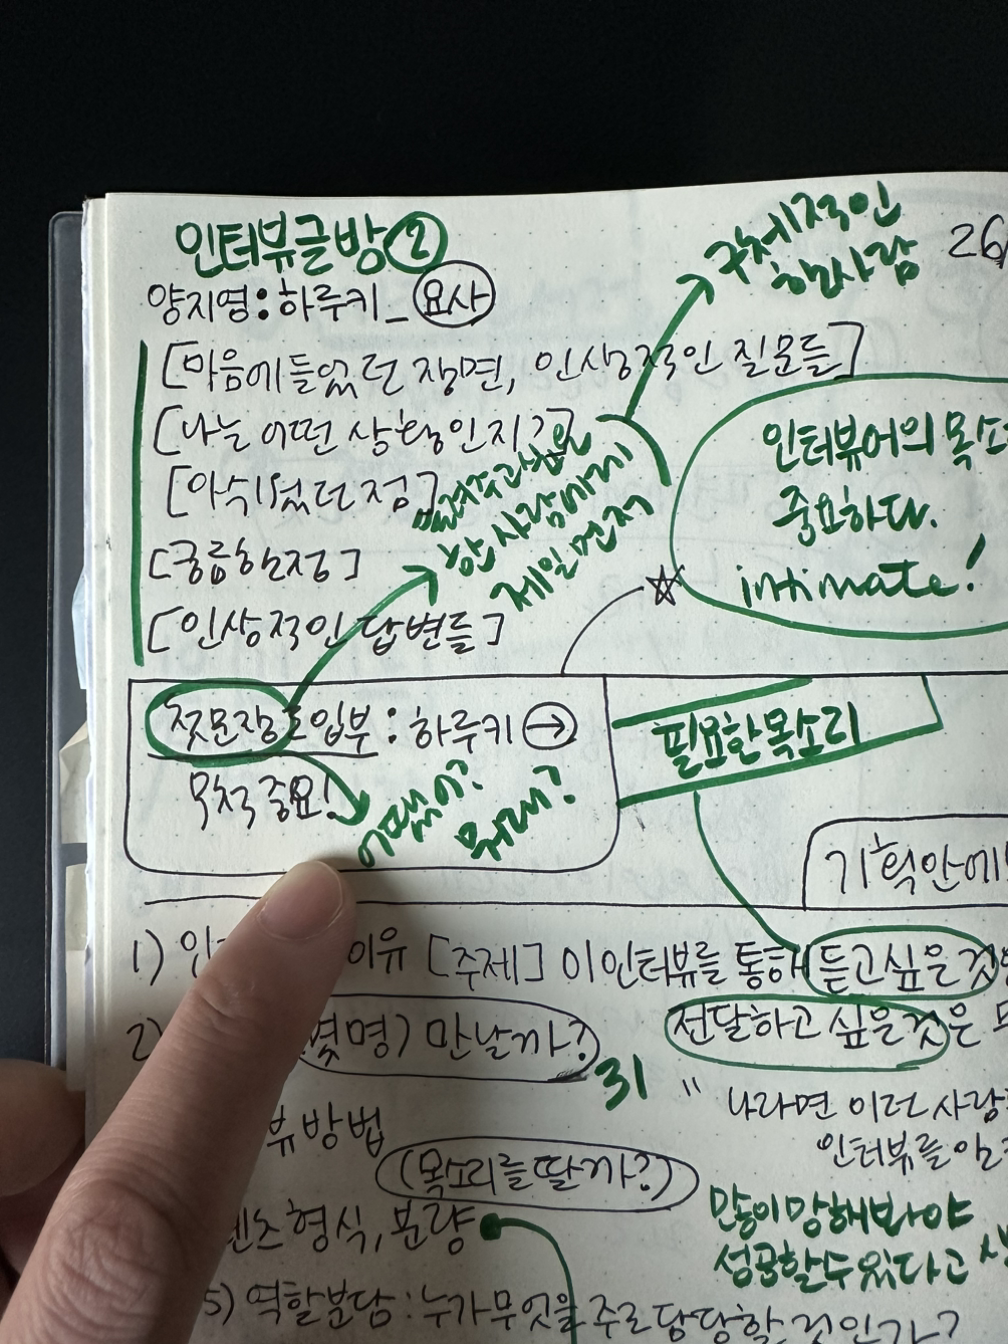 인터뷰글방 ②
26
양지영:하루키_요사
구체적인
한사람
[마음에들었던 장면, 인상적인 질문들]
[나는 어떤 상황인지?]
[아쉬웠던 점]
[궁금한점]
[인상적인 답변들]
들려주고싶은
한 사람에게
제일 먼저
인터뷰어의 목소
중요하다.
intimate!
첫문장 도입부 : 하루키 →
무척 중요!
어땠어?
뭐래?
필요한목소리
기획안에
1) 이유 [주제] 이 인터뷰를 통해 듣고싶은것
전달하고 싶은것은
2) (몇명) 만날까?
31
" 나라면 이런 사람
인터뷰를
뷰 방법
(목소리를 딸까?)
형식, 분량
많이망해봐야
성공할수있다고
5) 역할분담 : 누가 무엇을 주로 담당할 것인가?